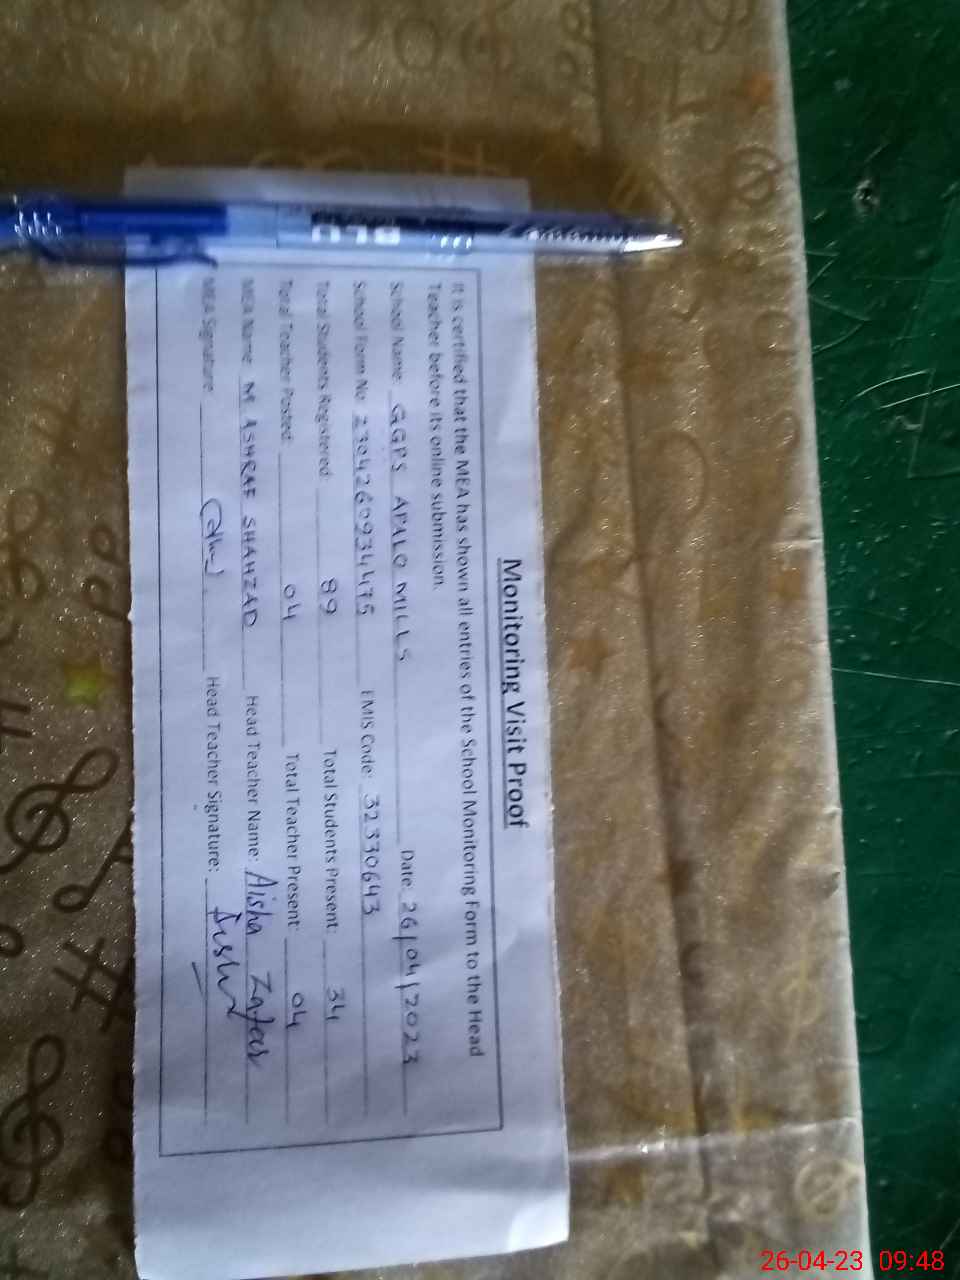 Monitoring Visit Proof
It is certified that the MEA has shown all entries of the School Monitoring Form to the Head
Teacher before its online submission.
School Name: GGPS APALO MILLS Date: 26/04/2023
School Form No: 2304260934475 EMIS Code: 32330643
Total Students Registered: 89 Total Students Present: 34
Total Teacher Posted: 04 Total Teacher Present: 04
MEA Name: M ASHRAF SHAHZAD Head Teacher Name: Aisha Zafar
MEA Signature: Head Teacher Signature:
26-04-23 09:48